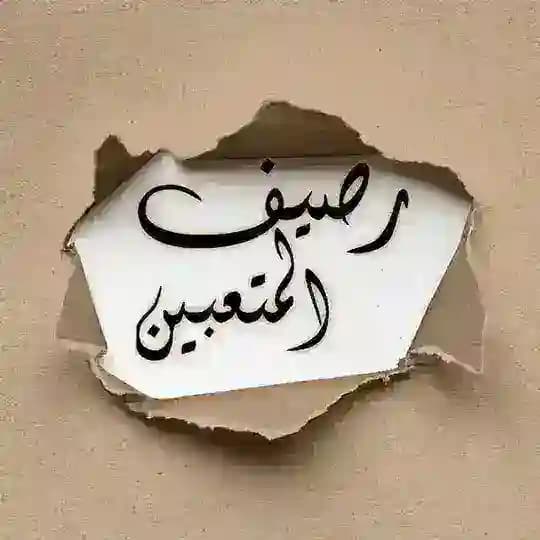 رصيف
المتعبين